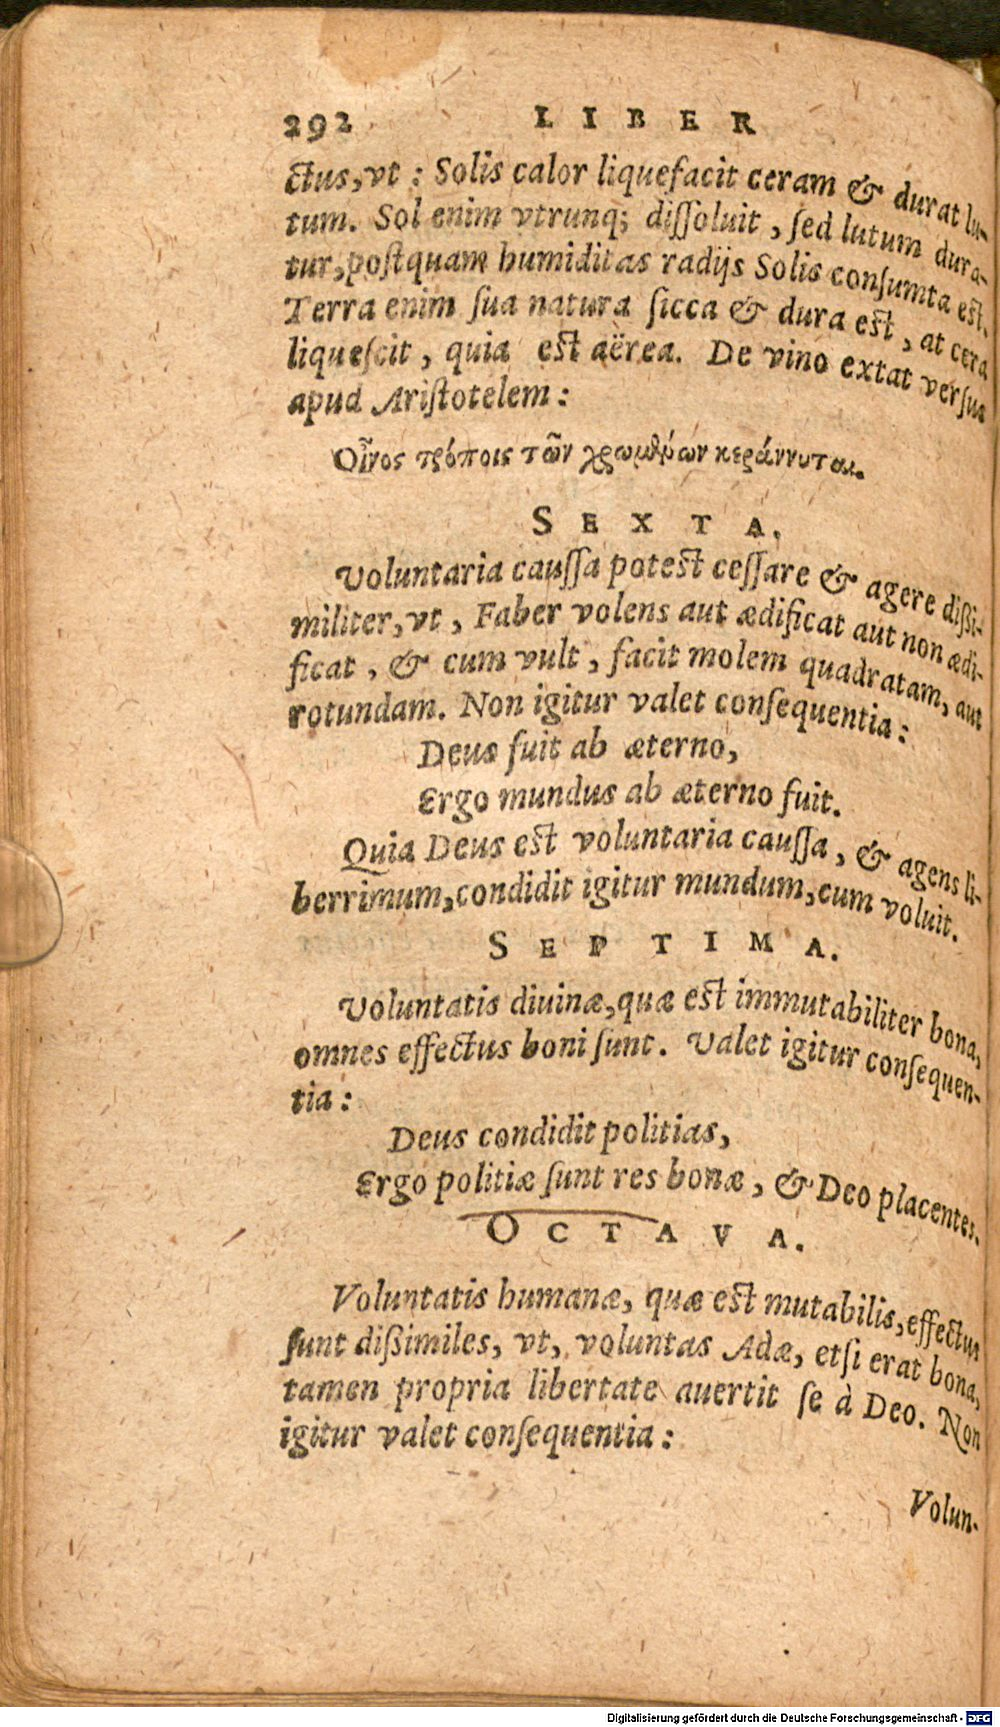 292 LIBER
ctus, vt : Solis calor liquefacit ceram & durat lu-
tum. Sol enim vtrunq; dissoluit, sed lutum dura-
tur, postquam humiditas radijs Solis consumta est.
Terra enim sua natura sicca & dura est, at cera
liquescit, quia est aërea. De vino extat versus
apud Aristotelem :
Οἶνος τρόποις τῶν χρωμθρ́ων κεράννυται.
SEXTA.
Voluntaria caussa potest cessare & agere dißi-
militer, vt, Faber volens aut ædificat aut non ædi-
ficat, & cum vult, facit molem quadratam, aut
rotundam. Non igitur valet consequentia :
Deus fuit ab æterno,
Ergo mundus ab æterno fuit.
Quia Deus est voluntaria caussa, & agens li-
berrimum, condidit igitur mundum, cum voluit.
SEPTIMA.
Voluntatis diuinæ, quæ est immutabiliter bona,
omnes effectus boni sunt. Valet igitur consequen-
tia :
Deus condidit politias,
Ergo politiæ sunt res bonæ, & Deo placentes.
OCTAVA.
Voluntatis humanæ, quæ est mutabilis, effectus
sunt dißimiles, vt, voluntas Adæ, etsi erat bona,
tamen propria libertate auertit se à Deo. Non
igitur valet consequentia :
Volun-
Digitalisierung gefördert durch die Deutsche Forschungsgemeinschaft - DFG